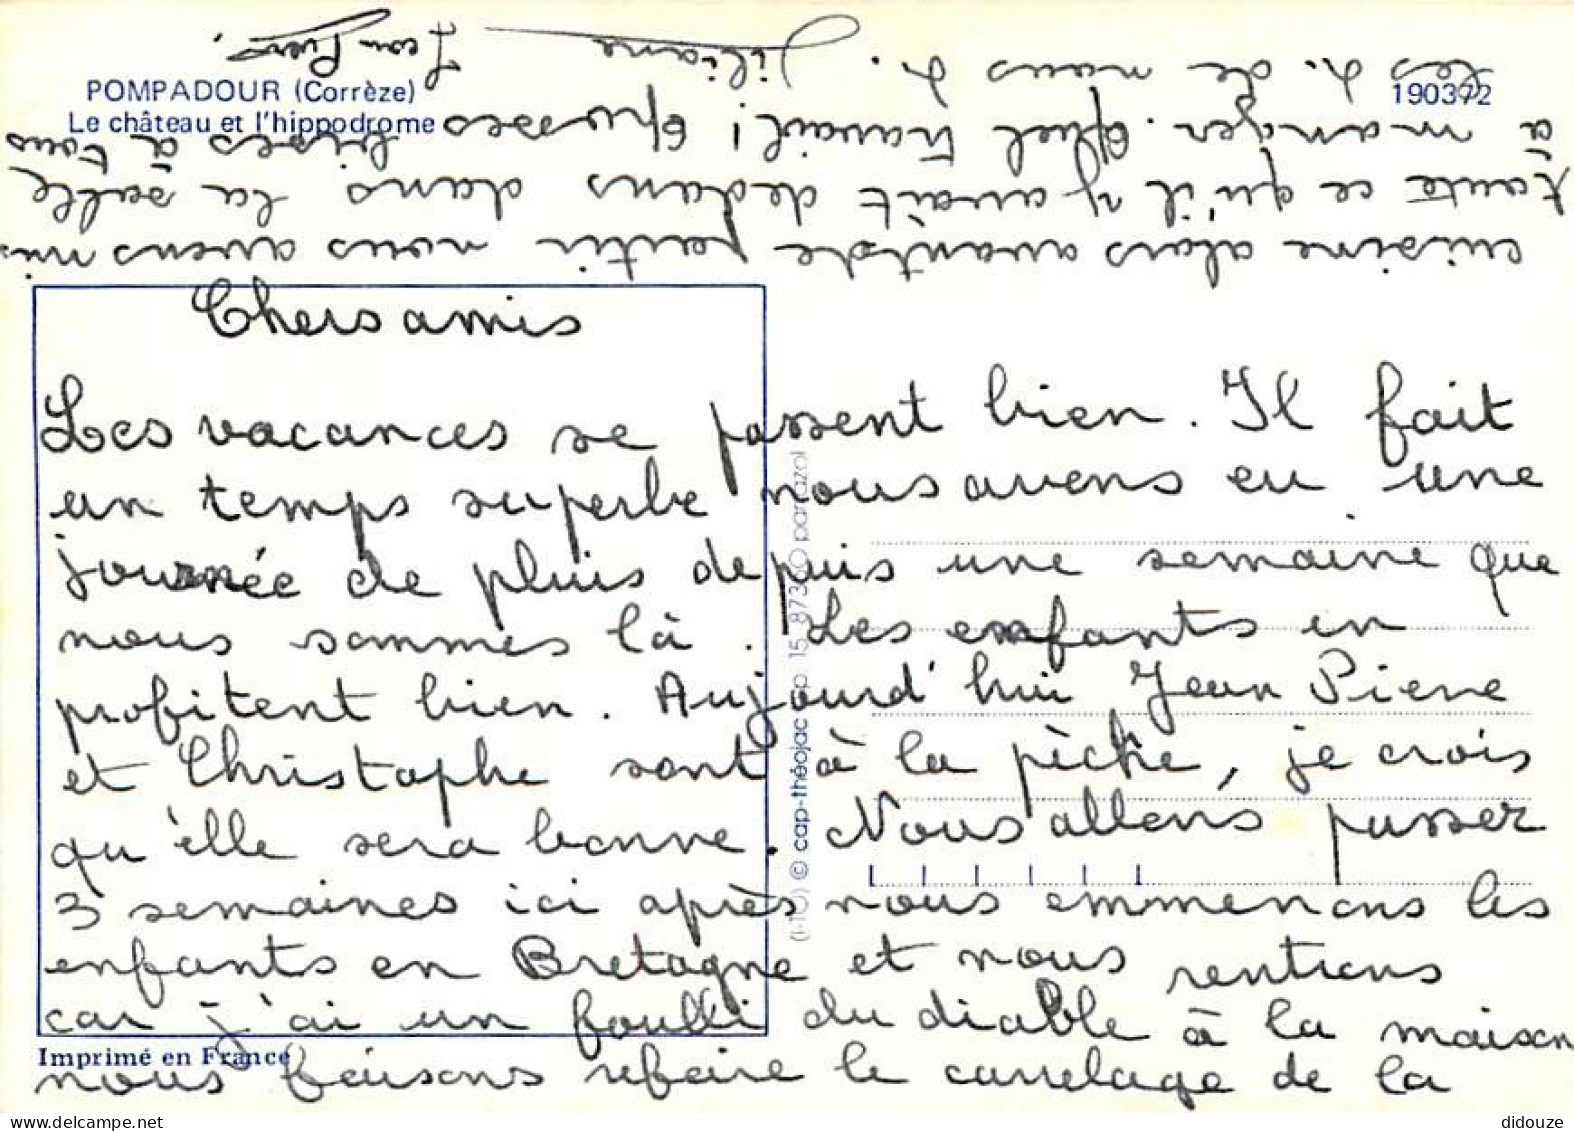 POMPADOUR (Corrèze)
Le château et l'hippodrome
190372
Chers amis
Les vacances se passent bien. Il fait
un temps superbe nous avons eu une
journée de pluis depuis une semaine que
nous sommes là. Les enfants en
profitent bien. Aujourd'hui Jean Pierre
et Christophe sont à la pèche, je crois
qu'elle sera bonne. Nous allons passer
3 semaines ici après nous emmenons les
enfants en Bretagne et nous rentrons
car j'ai un foulli du diable à la maison
nous faisons refaire le carrelage de la
cuisine alors avant de partir nous avons mis
toute ce qu'il y avait dedans dans la salle
à manger. Quel travail! Grosses bises à tous
les 4. de nous 4. Liliane Jean Pierre.
Imprimé en France
(1-10) © cap-théojac bp. 15 87350 panazol
didouze